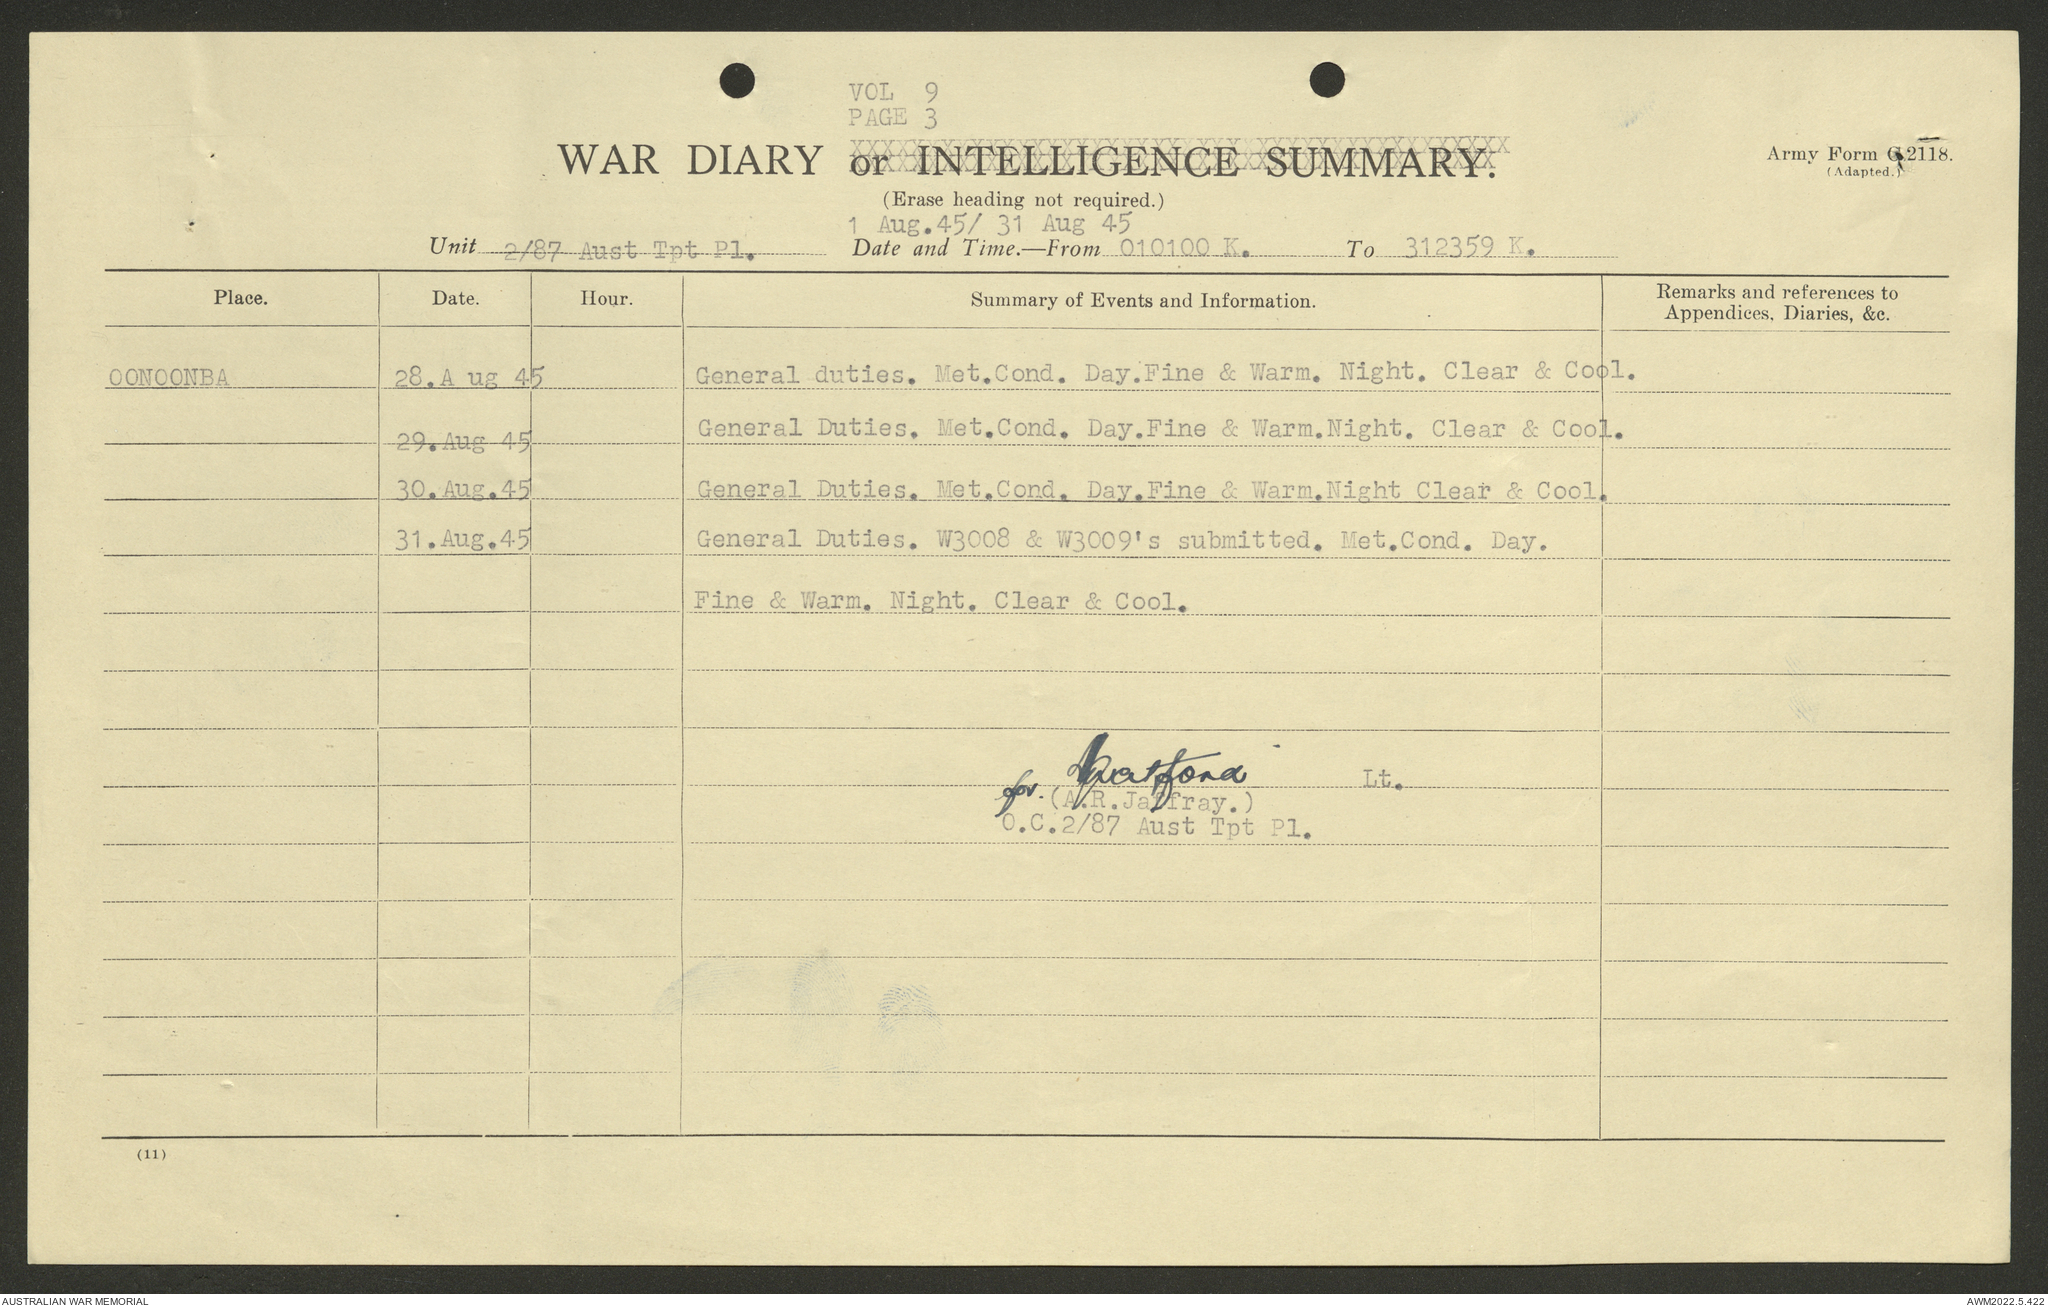 VOL 9
PAGE 3
WAR DIARY or INTELLIGENCE SUMMARY.
Army Form C.2118.
(Adapted.)
(Erase heading not required.)
1 Aug.45/ 31 Aug 45
Unit 2/87 Aust Tpt Pl. Date and Time.—From 010100 K. To 312359 K.
Place. Date. Hour. Summary of Events and Information. Remarks and references to
Appendices, Diaries, &c.
OONOONBA 28.A ug 45 General duties. Met.Cond. Day.Fine & Warm. Night. Clear & Cool.
29.Aug 45 General Duties. Met.Cond. Day.Fine & Warm.Night. Clear & Cool.
30.Aug.45 General Duties. Met.Cond. Day.Fine & Warm.Night Clear & Cool.
31.Aug.45 General Duties. W3008 & W3009's submitted. Met.Cond. Day.
Fine & Warm. Night. Clear & Cool.
Lt.
for. (A.R.Jaffray.)
O.C.2/87 Aust Tpt Pl.
(11)
AUSTRALIAN WAR MEMORIAL AWM2022.5.422